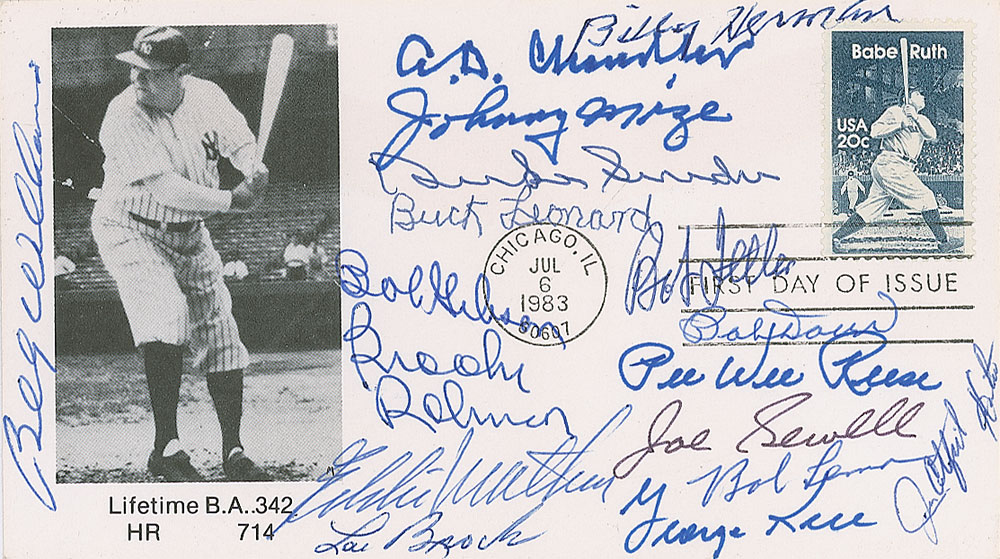 Billy Herman
A.B. Chandler
Johnny Mize
Buck Leonard
Babe Ruth
USA
20c
CHICAGO, IL
JUL
6
1983
60607
FIRST DAY OF ISSUE
Billy Williams
Bob Gibson
Bob Feller
Bob Doerr
Brooks
Robinson
Pee Wee Reese
Joe Sewell
Eddie Mathews
Bob Lemon
George Kell
Lou Brock
Jim Catfish Hunter
Lifetime B.A..342
HR 714